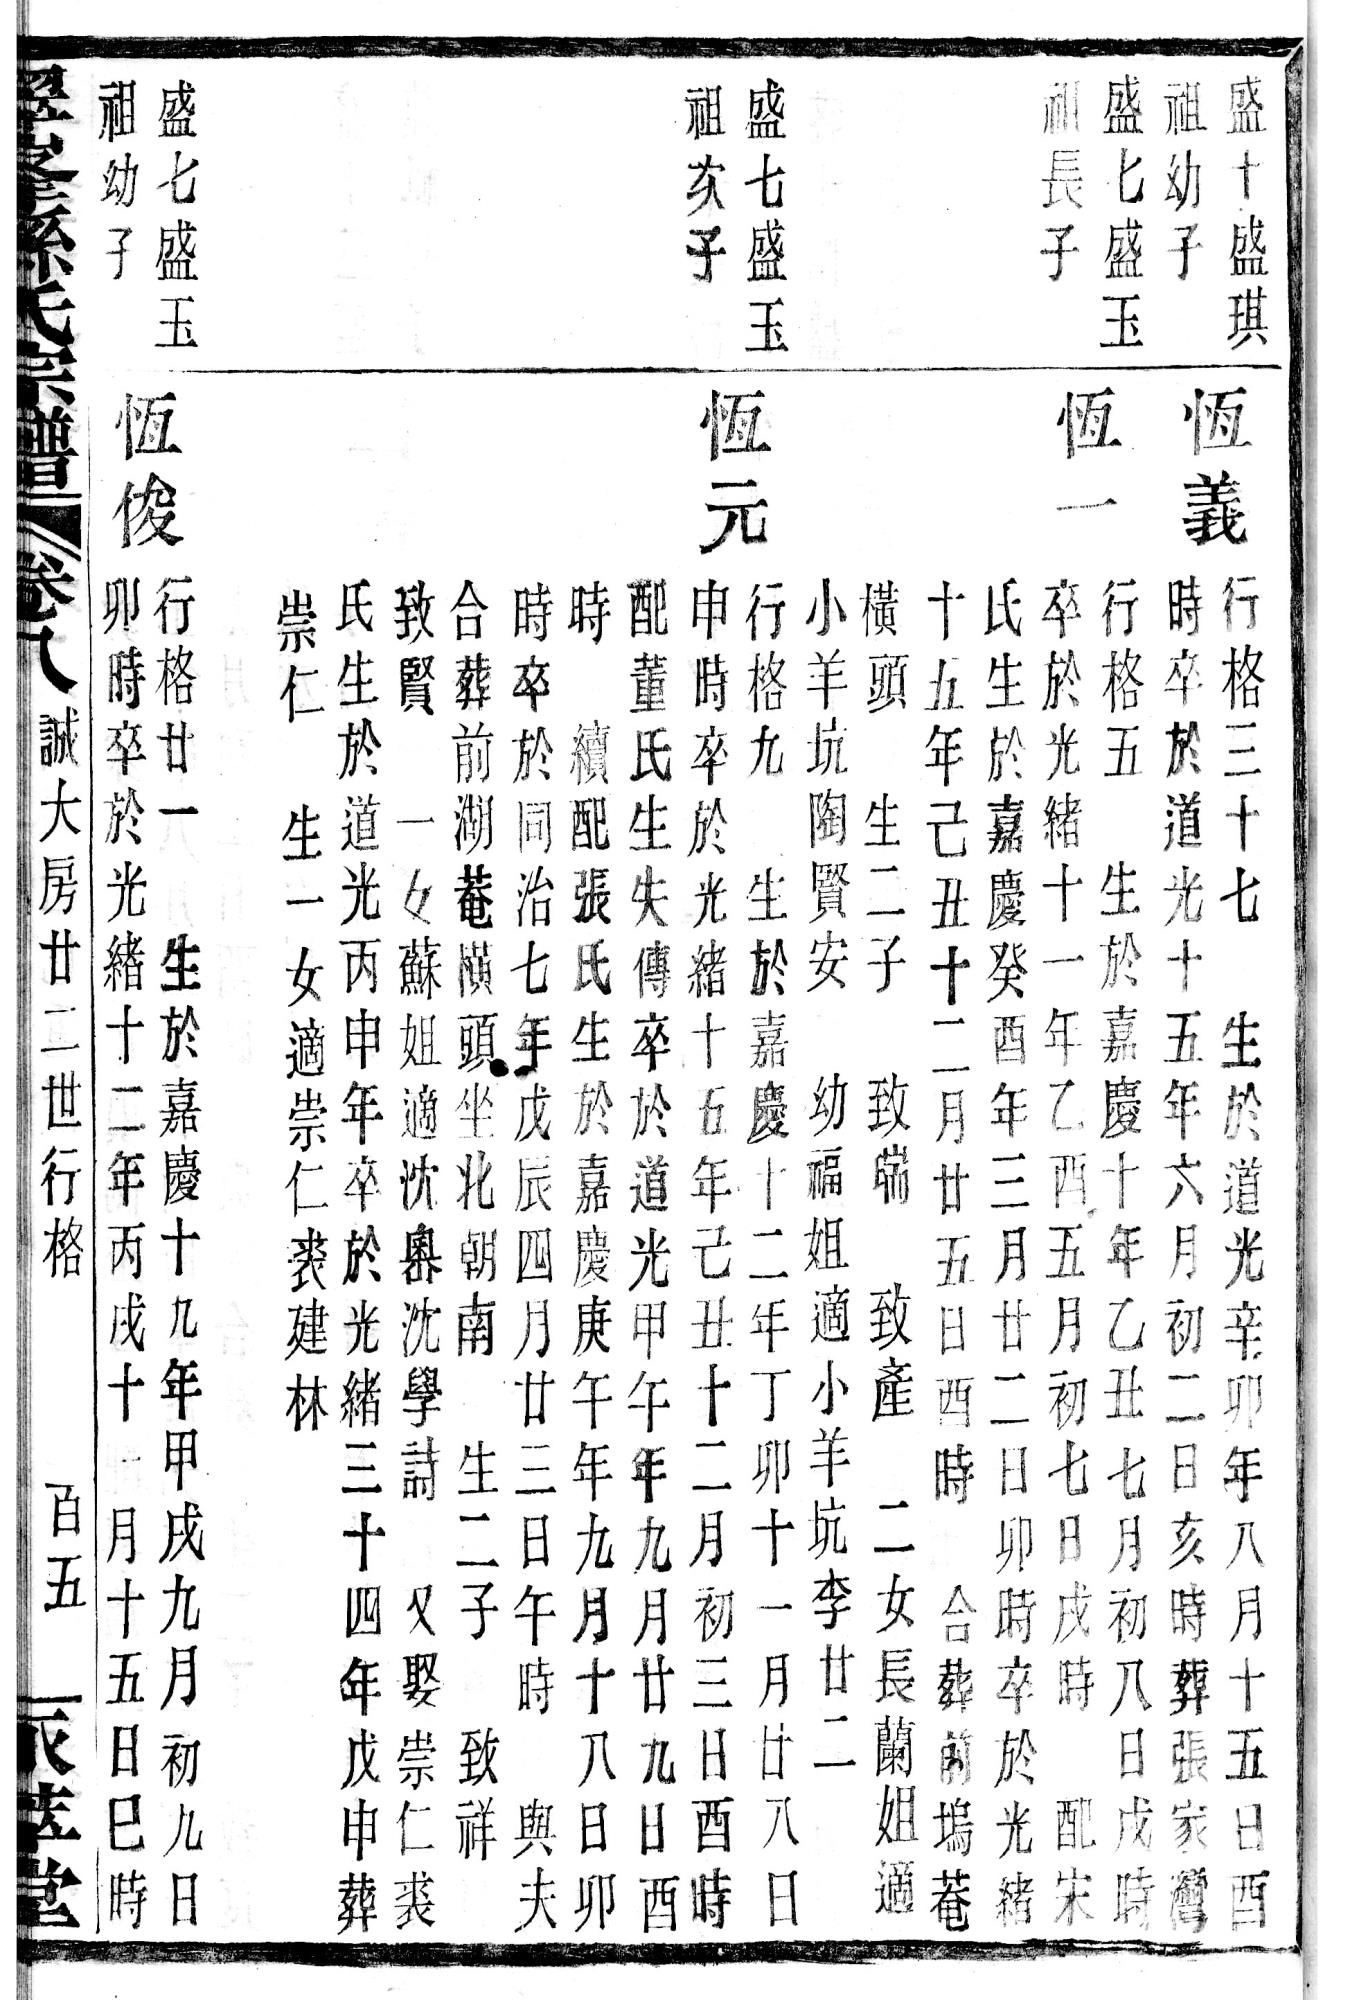 盛十盛琪
祖幼子
恆義
行格三十七　生於道光辛卯年八月十五日酉
時卒於道光十五年六月初二日亥時葬張家灣
盛七盛玉
祖長子
恆一
行格五　生於嘉慶十年乙丑七月初八日戌時
卒於光緒十一年乙酉五月初七日戌時　配宋
氏生於嘉慶癸酉年三月廿二日卯時卒於光緒
十五年己丑十二月廿五日酉時　合葬前塢菴
橫頭　生二子　致端　致產　二女長蘭姐適
小羊坑陶賢安　幼福姐適小羊坑李廿二
盛七盛玉
祖次子
恆元
行格九　生於嘉慶十二年丁卯十一月廿八日
申時卒於光緒十五年己丑十二月初三日酉時
配董氏生失傳卒於道光甲午年九月廿九日酉
時　續配張氏生於嘉慶庚午年九月十八日卯
時卒於同治七年戊辰四月廿三日午時　與夫
合葬前湖菴橫頭坐北朝南　生二子　致祥
致賢　一女蘇姐適沈奧沈學詩　又娶崇仁裘
氏生於道光丙申年卒於光緒三十四年戊申葬
崇仁　生一女適崇仁裘建林
盛七盛玉
祖幼子
恆俊
行格廿一　生於嘉慶十九年甲戌九月初九日
卯時卒於光緒十二年丙戌十一月十五日巳時
孫氏宗譜　卷八　誠大房廿二世行格　百五　堂